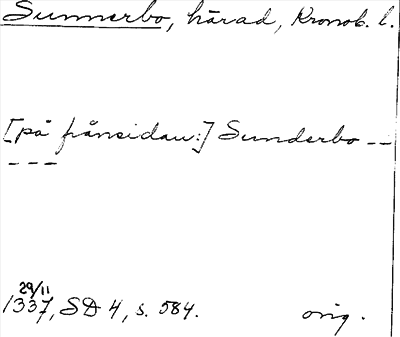 Sunnerbo, härad, Kronob. l.
[på frånsidan:] Sunderbo --
---
29/11
1337, SD 4, s. 584. orig.